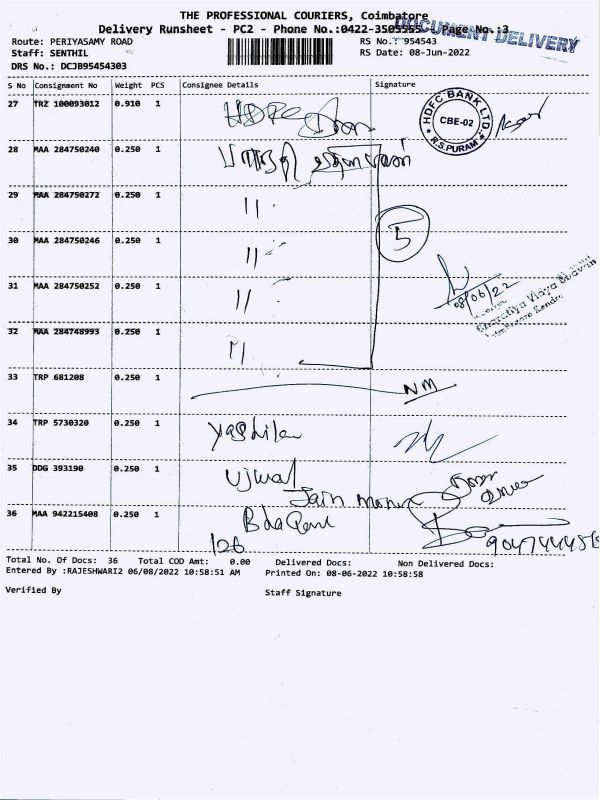 THE PROFESSIONAL COURIERS, Coimbatore
Delivery Runsheet - PC2 - Phone No.:0422-3505555 Page No.:3
DOCUMENT DELIVERY
Route: PERIYASAMY ROAD RS No.: 954543
Staff: SENTHIL RS Date: 08-Jun-2022
DRS No.: DCJB95454303
S No Consignment No Weight PCS Consignee Details Signature
27 TRZ 100093012 0.910 1 HDFC
HDFC BANK LTD. CBE-02 R.S.PURAM
28 MAA 284750240 0.250 1
29 MAA 284750272 0.250 1 11
30 MAA 284750246 0.250 1 11 5
31 MAA 284750252 0.250 1 11 08/06/22
Bharatiya Vidya Bhavan
Kendra
32 MAA 284748993 0.250 1 11
33 TRP 681208 0.250 1 NM
34 TRP 5730320 0.250 1
35 DDG 393190 0.250 1 Ujwal
Jain
36 MAA 942215408 0.250 1
126
Total No. Of Docs: 36 Total COD Amt: 0.00 Delivered Docs: Non Delivered Docs:
Entered By :RAJESHWARI2 06/08/2022 10:58:51 AM Printed On: 08-06-2022 10:58:58
Verified By Staff Signature